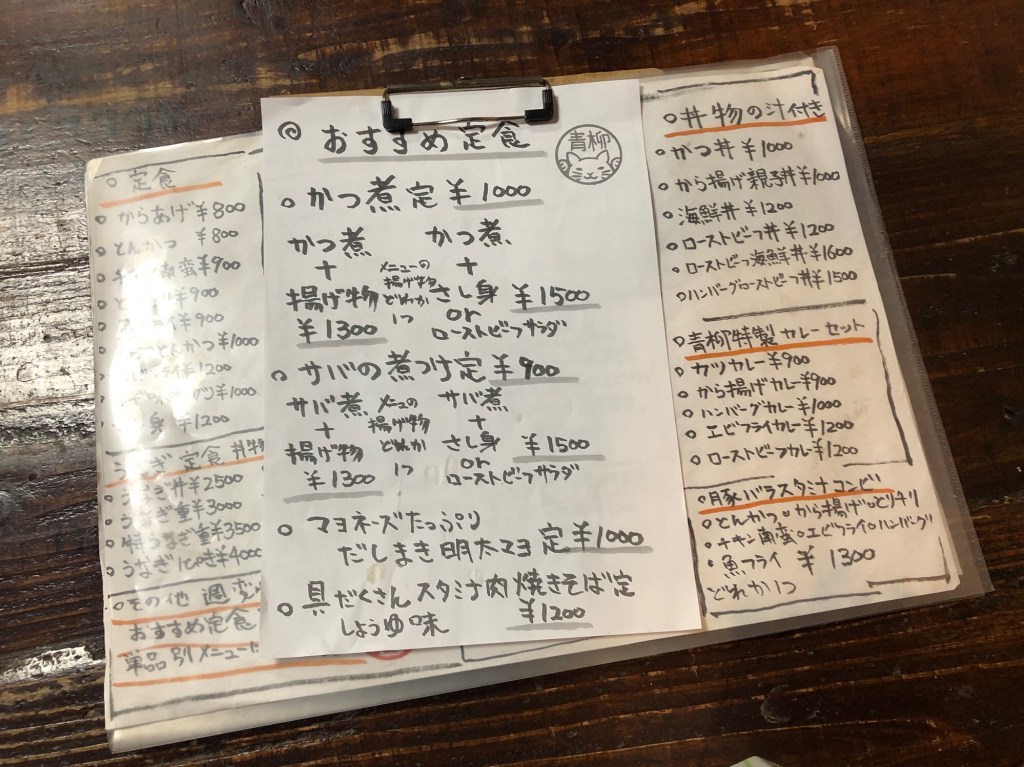 ◎おすすめ定食
青柳
○かつ煮定 ¥1000
かつ煮
+
揚げ物
¥1300
メニューの
揚げ物
どれか
1つ
かつ煮
+
さし身
or
ローストビーフサラダ
¥1500
○サバの煮つけ定 ¥900
サバ煮
+
揚げ物
¥1300
メニュの
揚げ物
どれか
1つ
サバ煮
+
さし身
or
ローストビーフサラダ
¥1500
○マヨネーズたっぷり
だしまき明太マヨ定 ¥1000
○具だくさんスタミナ肉焼きそば定
しょうゆ味 ¥1200
○定食
○からあげ¥800
○とんかつ ¥800
南蛮¥900
¥900
¥900
とんかつ¥1000
フライ¥1200
¥1000
身 ¥1200
うなぎ定食 丼物
○うなぎ丼¥2500
○うなぎ重¥3000
○特うなぎ重¥3500
○うなぎ ¥4000
○その他 週変
おすすめ定食
単品別メニュー
○丼物の汁付き
○かつ丼 ¥1000
○から揚げ親子丼¥1000
○海鮮丼 ¥1200
○ローストビーフ丼 ¥1200
○ローストビーフ海鮮丼¥1600
○ハンバーグローストビーフ丼¥1500
○青柳特製カレーセット
○カツカレー¥900
○から揚げカレー¥900
○ハンバーグカレー¥1000
○エビフライカレー¥1200
○ローストビーフカレー¥1200
○豚バラスタミナコンビ
○とんかつ○から揚げ○とりチリ
○チキン南蛮○エビフライ○ハンバーグ
○魚フライ ¥1300
どれか1つ